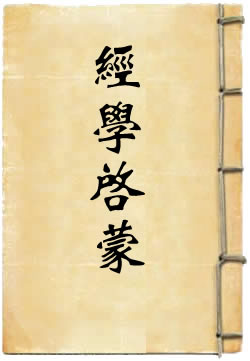 經學啓蒙